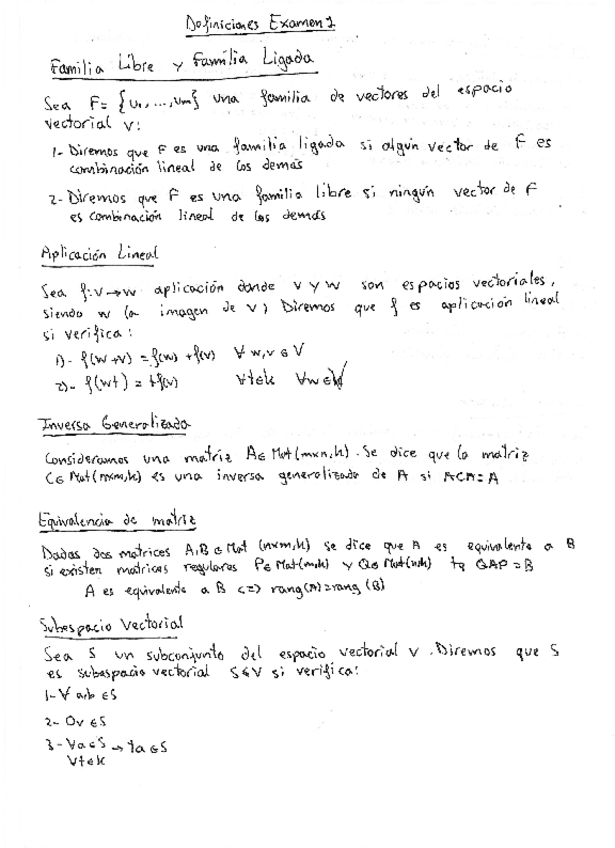 Definiciones Examen 1
Familia Libre y Familia Ligada
Sea F= {u₁,...,um} una familia de vectores del espacio
vectorial V:
1- Diremos que F es una familia ligada si algún vector de F es
combinación lineal de los demás
2- Diremos que F es una familia libre si ningún vector de F
es combinación lineal de los demás
Aplicación Lineal
Sea f:V→W aplicación donde V y W son espacios vectoriales,
siendo W la imagen de V) Diremos que f es aplicación lineal
si verifica:
1)- f(w+v) = f(w) + f(v) ∀ w,v ∈ V
2)- f(wt) = t f(v) ∀t∈k ∀w∈V
Inversa Generalizada
Consideramos una matriz A∈ Mat(mxn,k). Se dice que la matriz
C∈ Mat(nxm,k) es una inversa generalizada de A si ACA=A
Equivalencia de matriz
Dadas dos matrices A,B ∈ Mat (nxm,k) se dice que A es equivalente a B
si existen matrices regulares P∈ Mat(m,k) y Q∈ Mat(n,k) tq QAP=B
A es equivalente a B <=> rang(A)=rang (B)
Subespacio Vectorial
Sea S un subconjunto del espacio vectorial V. Diremos que S
es subespacio vectorial S≤V si verifica:
1- ∀ a,b ∈S
2- 0v ∈S
3- ∀a∈S → ta∈S
∀t∈k